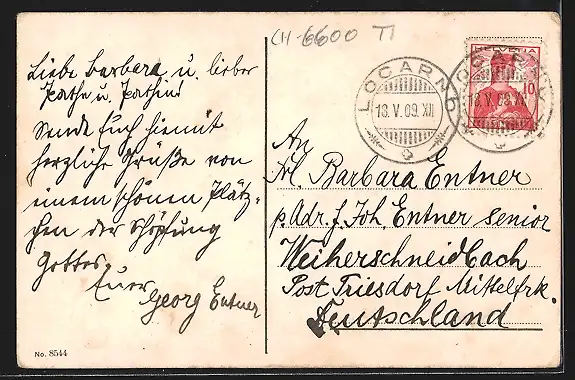 CH-6600 TI
Liebe Barbara u. lieber
Pathe u. Pathin!
Sende Euch hiemit
herzliche Grüße von
einem schönen Plätz-
chen der Schöpfung
Gottes.
Euer
Georg Entner
No. 8544
HELVETIA
10
LOCARNO
13.V.09.XII
LOCARNO
13.V.09.XII
An
Frl. Barbara Entner
p. Adr. f. Joh. Entner senior
Weiherschneidbach
Post Triesdorf Mittelfrk.
Deutschland